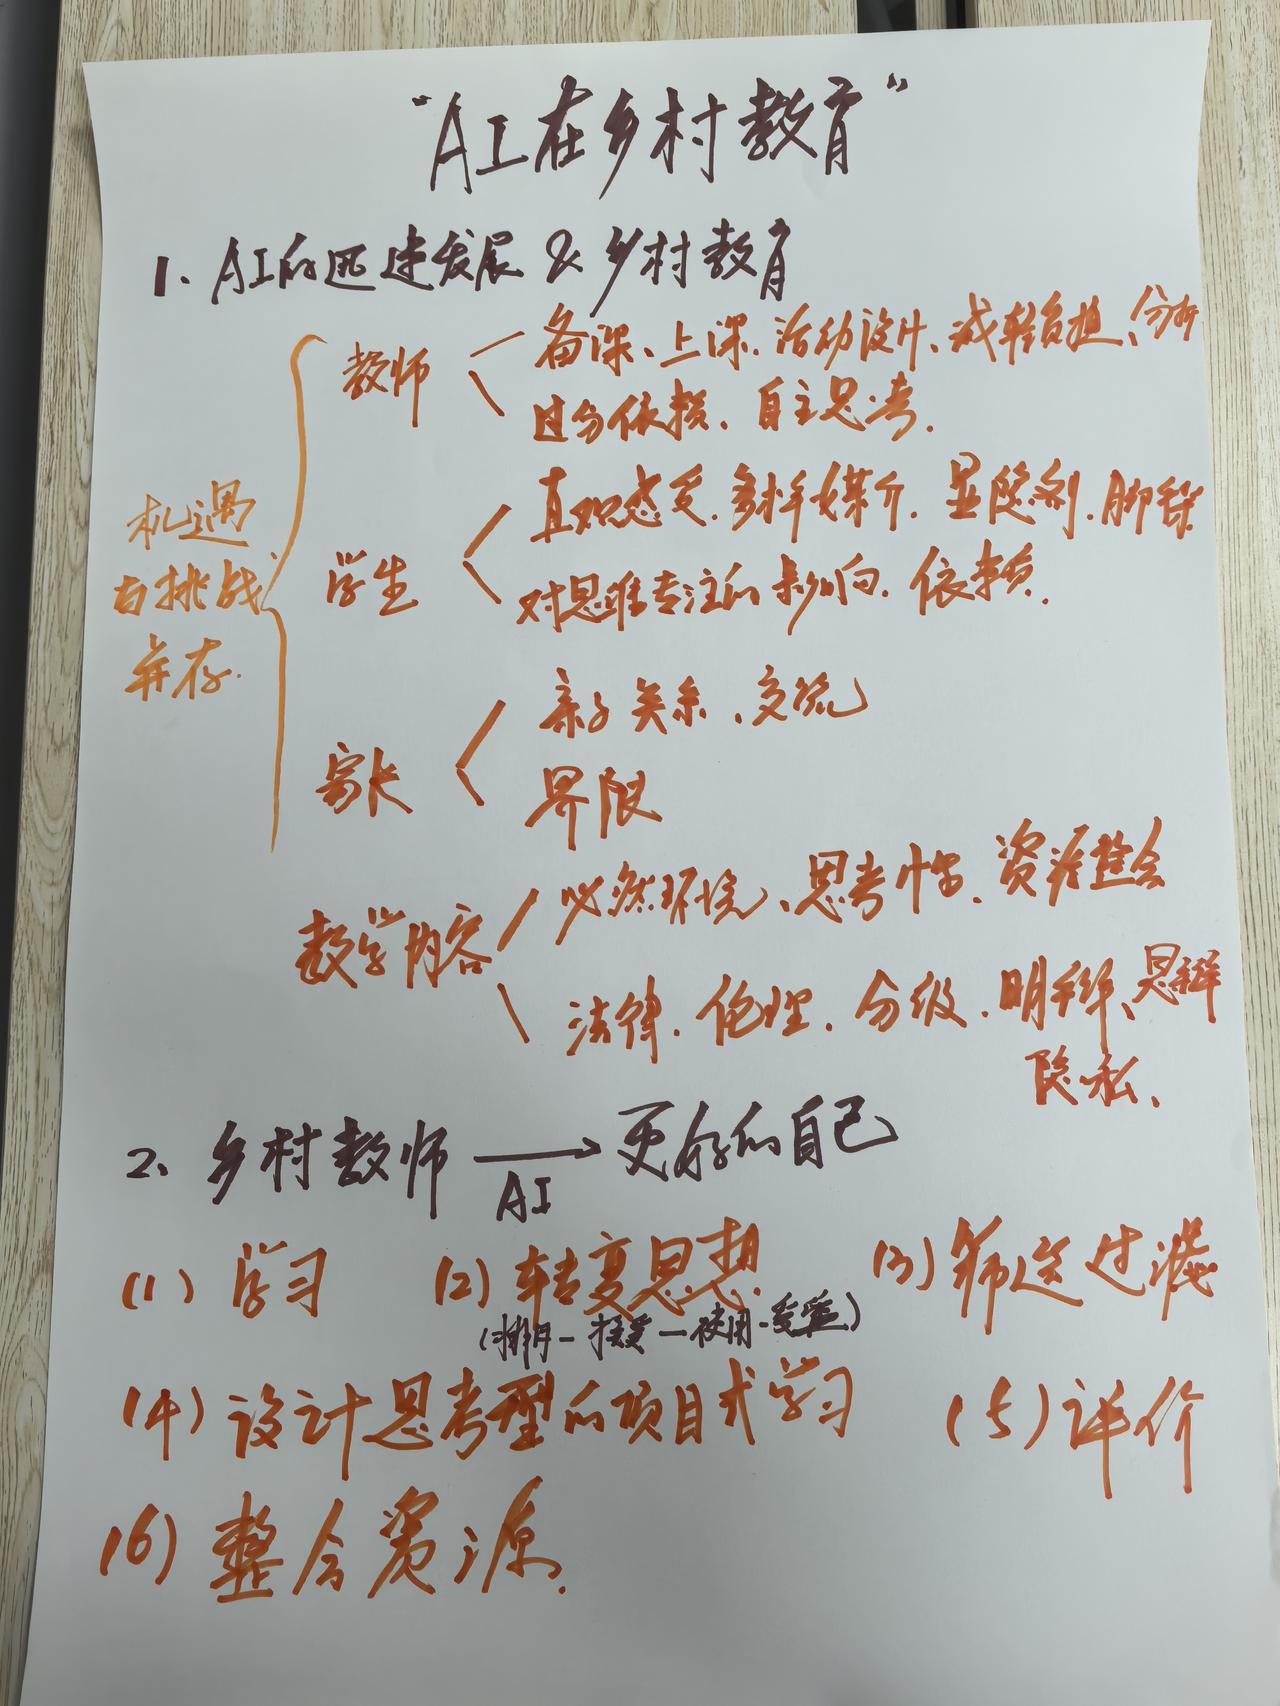 “AI在乡村教育”
1、AI的迅速发展 & 乡村教育
机遇
与挑战
并存.
教师
备课、上课、活动设计、减轻负担、分析
过分依赖、自主思考.
学生
直观感受、多样媒介、显隐剂、脚手架
对思维专注的影响、依赖.
家长
亲子关系、交流
界限
教学内容
必然环境、思考性、资源整合
法律、伦理、分级、明辨、思辨
隐私、
2、乡村教师 AI → 更好的自己
(1) 学习 (2) 转变思想 (3) 筛选过滤
(排斥-接受-使用-受益)
(4) 设计思考型的项目式学习 (5) 评价
(6) 整合资源.